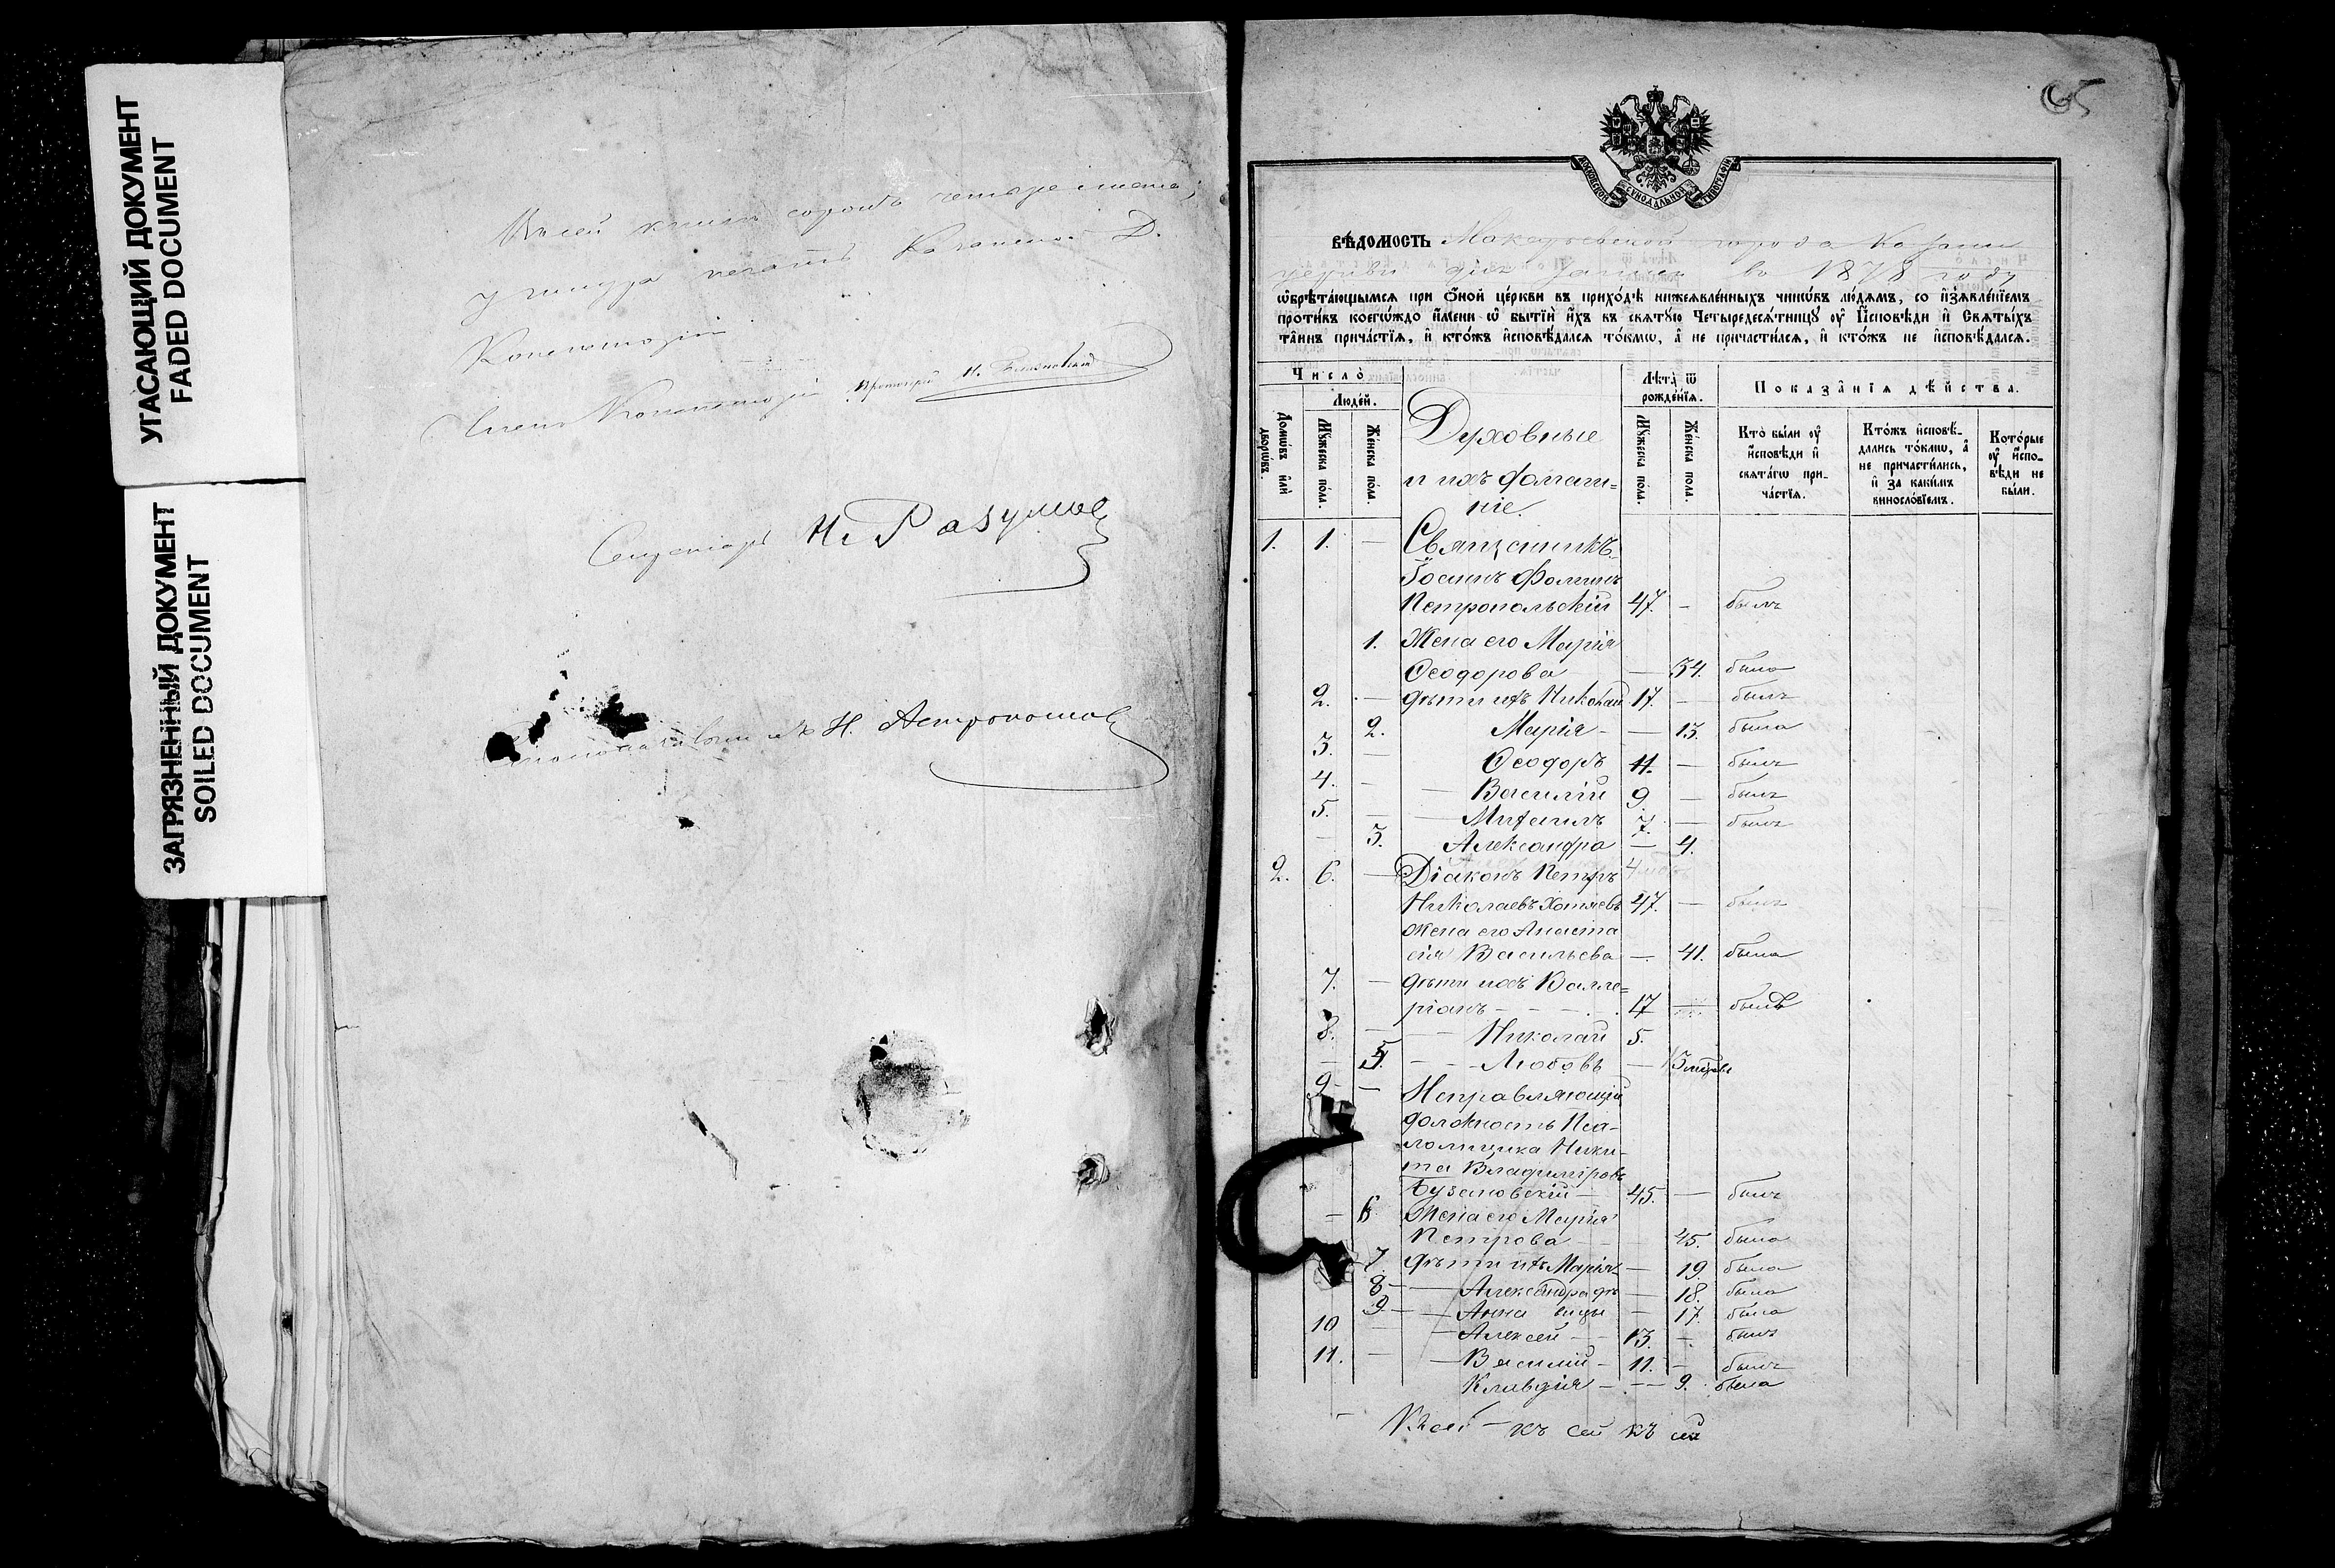 УГАСАЮЩИЙ ДОКУМЕНТ
FADED DOCUMENT
ЗАГРЯЗНЕННЫЙ ДОКУМЕНТ
SOILED DOCUMENT
Въ сей книгѣ сорокъ четыре листа;
у шнура печать Казанской Д.
Консисторіи
Членъ Консисторіи Протоіерей
Секретарь Н. Разумов
Столоначальникъ Н. Астрономов
65
МОСКОВСКОЙ СѴНОДАЛЬНОЙ ТИПОГРАФІИ
ВѢДОМОСТЬ Макарьевской города Казани
церкви для записи во 1878 году
ѡбрѣтающымся при Ѻной церкви въ приходѣ нижеявленныхъ чинѡвъ людямъ, со изъявленіемъ
противъ коегѡждо имени ѡ бытіи ихъ въ святую Четыредесятницу оу Исповѣди и Святыхъ
таинъ причастія, и ктожъ исповѣдался токмѡ, а не причастился, и ктожъ не исповѣдался.
Число
Людей.
Домѡвъ или дворѡвъ.
Мужеска пола.
Женска пола.
Духовные
и ихъ домаш=
ніе.
Лѣта ѿ рожденія.
Мужеска пола.
Женска пола.
Показанія дѣйства.
Кто были оу исповѣди и святагѡ причастія.
Ктожъ исповѣ-
дались токмѡ, а
не причастились,
и за какимъ
винословіемъ.
Которые
оу испо-
вѣди не
были.
1. 1. — Священникъ
Іоаннъ Фоминъ
Петропольскій 47. — былъ
1. Жена его Марія
Ѳеодорова — 34. была
2. — дѣти ихъ Николай 17. — былъ
2. Марія — — 13. была
3. — Ѳеодоръ 11. — былъ
4. — — Василій 9. — былъ
5. — — Михаилъ 7. — былъ
— 3. Александра — 4.
2. 6. — Діаконъ Петръ
Николаевъ Хотяевъ 47. — былъ
Жена его Анаста
сія Васильева — 41. была
7. — дѣти ихъ Валле=
ріанъ — — — 17 — былъ
8. — — Николай 5.
— 5. — — Любовь —
9 — Исправляющій
должность Пса-
ломщика Ники-
та Владиміровъ
Бузановскій — 45. — былъ
— 6 Жена его Марія
Петрова — 45. была
7. дѣти ихъ Марія — 19. была
8 — — Александра дѣ — 18. была
9. — — Анна вицы — 17. была
10 — Алексей — 13. — былъ
11. — — Василій — 11. — былъ
Клавдія — — 9. была
Къ сей — къ сей къ сей